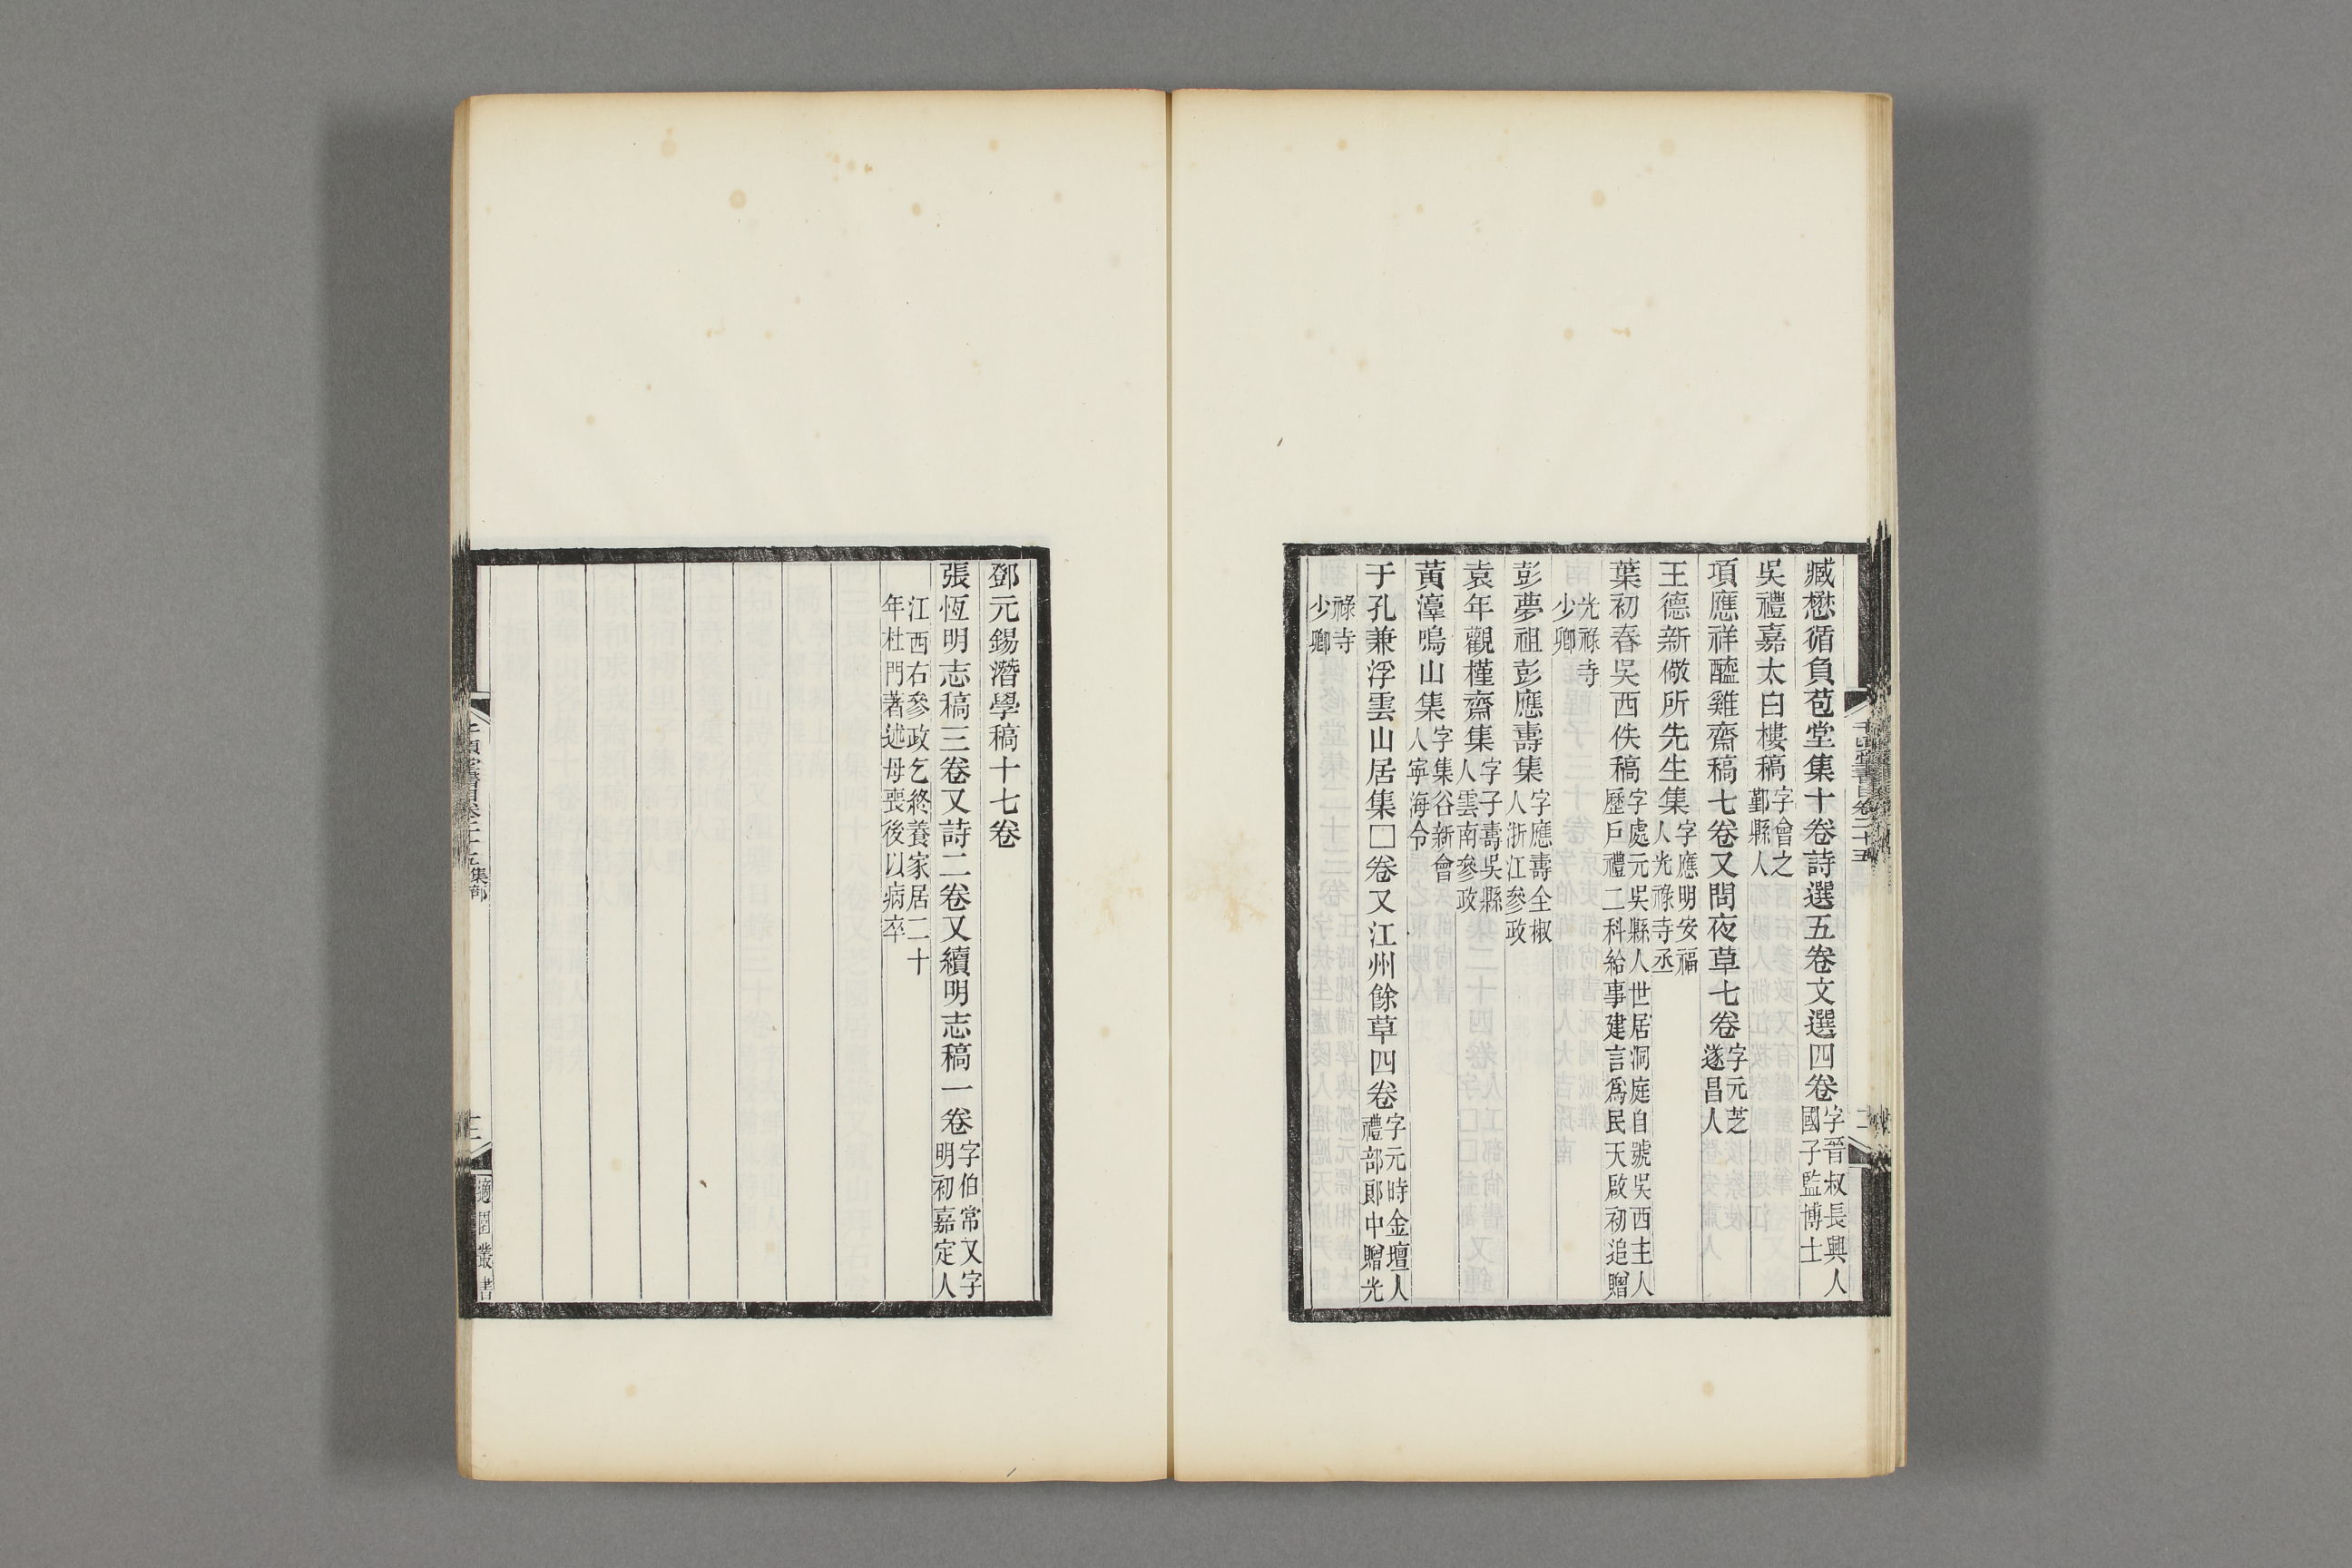 臧懋循負苞堂集十卷詩選五卷文選四卷字晉叔長興人國子監博士
吳禮嘉太白樓稿字會之鄞縣人
項應祥醯雞齋稿七卷又問夜草七卷字元芝遂昌人
王德新儆所先生集字應明安福人光祿寺丞
葉初春吳西佚稿字處元吳縣人世居洞庭自號吳西主人歷戶禮二科給事建言爲民天啟初追贈
光祿寺少卿
彭夢祖彭應壽集字應壽全椒人浙江參政
袁年觀槿齋集字子壽吳縣人雲南參政
黃瀳鳴山集字集谷新會人寧海令
于孔兼浮雲山居集□卷又江州餘草四卷字元時金壇人禮部郎中贈光
祿寺少卿
千頃堂書目卷二十五
二
鄧元錫潛學稿十七卷
張恆明志稿三卷又詩二卷又續明志稿一卷字伯常又字明初嘉定人
江西右參政乞終養家居二十年杜門著述母喪後以病卒
集部
三
適園叢書